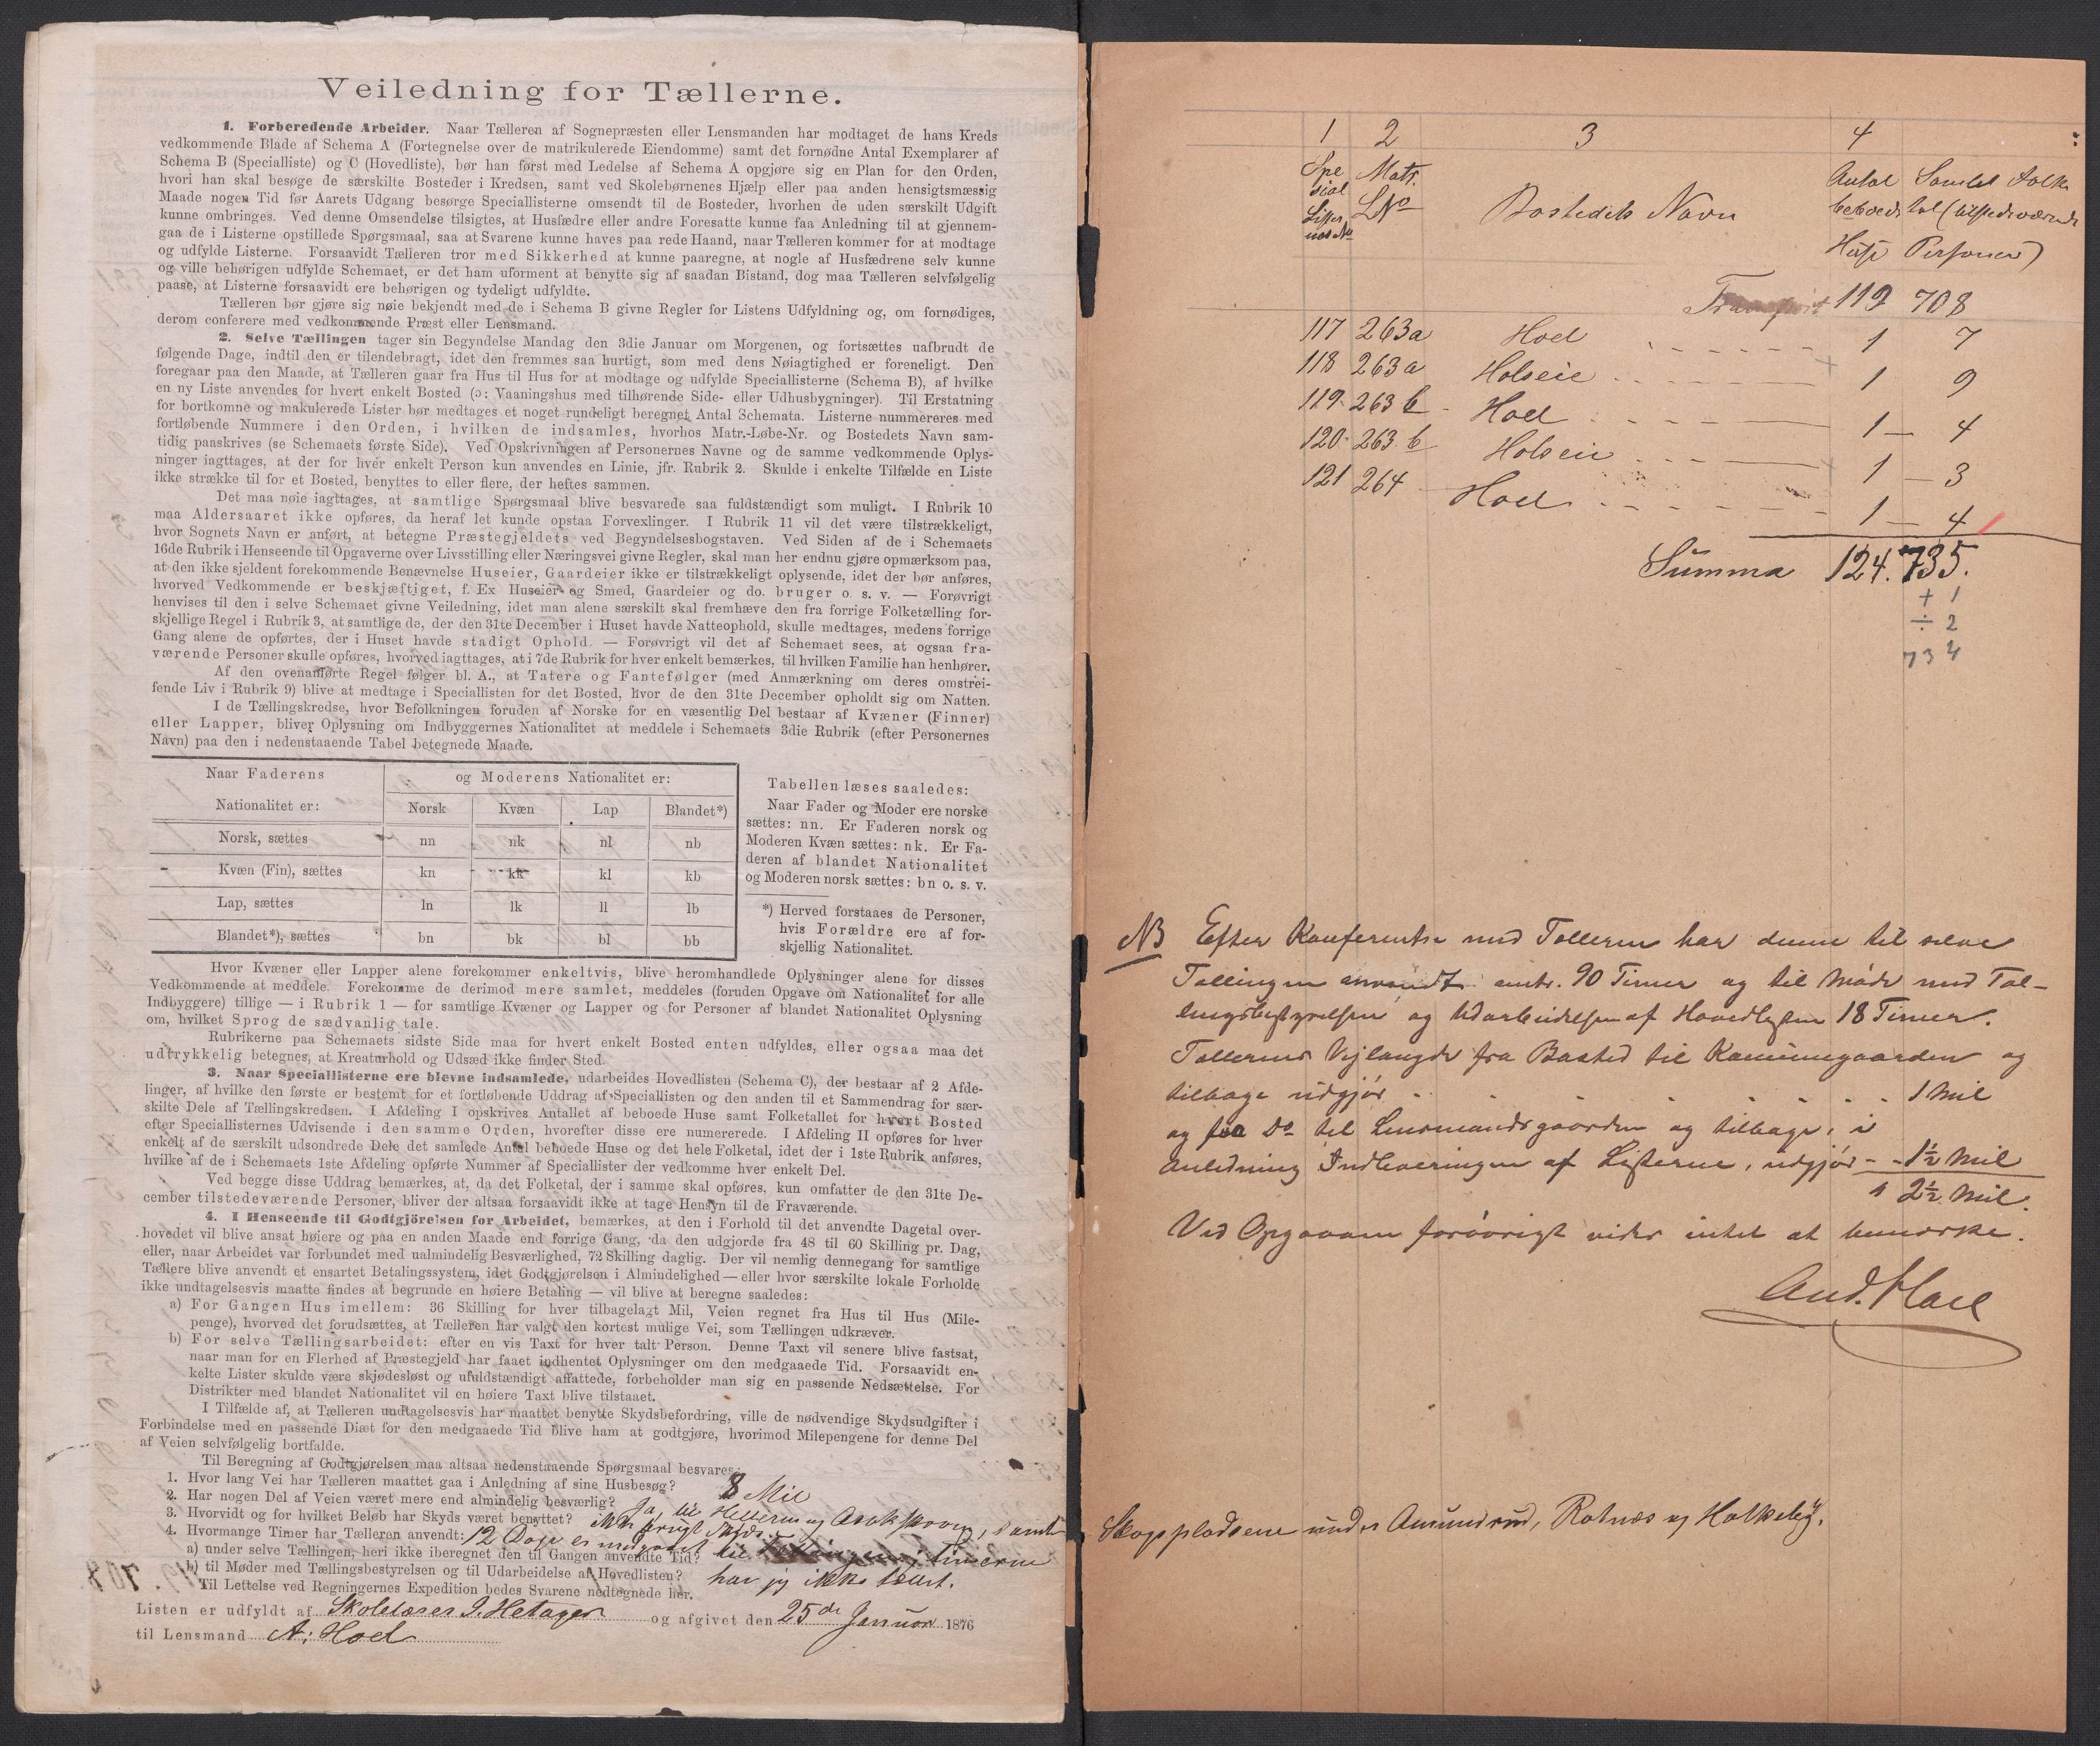 Veiledning for Tællerne.
1. Forberedende Arbeider. Naar Tælleren af Sognepræsten eller Lensmanden har modtaget de hans Kreds
vedkommende Blade af Schema A (Fortegnelse over de matrikulerede Eiendomme) samt det fornødne Antal Exemplarer af
Schema B (Specialliste) og C (Hovedliste), bør han først med Ledelse af Schema A opgjøre sig en Plan for den Orden,
hvori han skal besøge de særskilte Bosteder i Kredsen, samt ved Skolebørnenes Hjælp eller paa anden hensigtsmæssig
Maade nogen Tid før Aarets Udgang besørge Speciallisterne omsendt til de Bosteder, hvorhen de uden særskilt Udgift
kunne ombringes. Ved denne Omsendelse tilsigtes, at Husfædre eller andre Foresatte kunne faa Anledning til at gjennem-
gaa de i Listerne opstillede Spørgsmaal, saa at Svarene kunne haves paa rede Haand, naar Tælleren kommer for at modtage
og udfylde Listerne. Forsaavidt Tælleren tror med Sikkerhed at kunne paaregne, at nogle af Husfædrene selv kunne
og ville behørigen udfylde Schemaet, er det ham uforment at benytte sig af saadan Bistand, dog maa Tælleren selvfølgelig
paase, at Listerne forsaavidt ere behørigen og tydeligt udfyldte.
Tælleren bør gjøre sig nøie bekjendt med de i Schema B givne Regler for Listens Udfyldning og, om fornødiges,
derom conferere med vedkommende Præst eller Lensmand.
2. Selve Tællingen tager sin Begyndelse Mandag den 3die Januar om Morgenen, og fortsættes uafbrudt de
følgende Dage, indtil den er tilendebragt, idet den fremmes saa hurtigt, som med dens Nøiagtighed er foreneligt. Den
foregaar paa den Maade, at Tælleren gaar fra Hus til Hus for at modtage og udfylde Speciallisterne (Schema B), af hvilke
en ny Liste anvendes for hvert enkelt Bosted (ɔ: Vaaningshus med tilhørende Side- eller Udhusbygninger). Til Erstatning
for bortkomne og makulerede Lister bør medtages et noget rundeligt beregnet Antal Schemata. Listerne nummereres med
fortløbende Nummere i den Orden, i hvilken de indsamles, hvorhos Matr.-Løbe-Nr. og Bostedets Navn sam-
tidig paaskrives (se Schemaets første Side). Ved Opskrivningen af Personernes Navne og de samme vedkommende Oplys-
ninger iagttages, at der for hver enkelt Person kun anvendes en Linie, jfr. Rubrik 2. Skulde i enkelte Tilfælde en Liste
ikke strække til for et Bosted, benyttes to eller flere, der heftes sammen.
Det maa nøie iagttages, at samtlige Spørgsmaal blive besvarede saa fuldstændigt som muligt. I Rubrik 10
maa Aldersaaret ikke opføres, da heraf let kunde opstaa Forvexlinger. I Rubrik 11 vil det være tilstrækkeligt,
hvor Sognets Navn er anført, at betegne Præstegjeldets ved Begyndelsesbogstaven. Ved Siden af de i Schemaets
16de Rubrik i Henseende til Opgaverne over Livsstilling eller Næringsvei givne Regler, skal man her endnu gjøre opmærksom paa,
at den ikke sjeldent forekommende Benævnelse Huseier, Gaardeier ikke er tilstrækkeligt oplysende, idet der bør anføres,
hvorved Vedkommende er beskjæftiget, f. Ex Huseier og Smed, Gaardeier og do. bruger o. s. v. — Forøvrigt
henvises til den i selve Schemaet givne Veiledning, idet man alene særskilt skal fremhæve den fra forrige Folketælling for-
skjellige Regel i Rubrik 3, at samtlige de, der den 31te December i Huset havde Natteophold, skulle medtages, medens forrige
Gang alene de opførtes, der i Huset havde stadigt Ophold. — Forøvrigt vil det af Schemaet sees, at ogsaa fra-
værende Personer skulle opføres, hvorved iagttages, at i 7de Rubrik for hver enkelt bemærkes, til hvilken Familie han henhører.
Af den ovenanførte Regel følger bl. A., at Tatere og Fantefølger (med Anmærkning om deres omstrei-
fende Liv i Rubrik 9) blive at medtage i Speciallisten for det Bosted, hvor de den 31te December opholdt sig om Natten.
I de Tællingskredse, hvor Befolkningen foruden af Norske for en væsentlig Del bestaar af Kvæner (Finner)
eller Lapper, bliver Oplysning om Indbyggernes Nationalitet at meddele i Schemaets 3die Rubrik (efter Personernes
Navn) paa den i nedenstaaende Tabel betegnede Maade.
Naar Faderens og Moderens Nationalitet er:
Nationalitet er: Norsk Kvæn Lap Blandet*)
Norsk, sættes nn nk nl nb
Kvæn (Fin), sættes kn kk kl kb
Lap, sættes ln lk ll lb
Blandet*), sættes bn bk bl bb
Tabellen læses saaledes:
Naar Fader og Moder ere norske
sættes: nn. Er Faderen norsk og
Moderen Kvæn sættes: nk. Er Fa-
deren af blandet Nationalitet
og Moderen norsk sættes: bn o. s. v.
*) Herved forstaaes de Personer,
hvis Forældre ere af for-
skjellig Nationalitet.
Hvor Kvæner eller Lapper alene forekommer enkeltvis, blive heromhandlede Oplysninger alene for disses
Vedkommende at meddele. Forekomme de derimod mere samlet, meddeles (foruden Opgave om Nationalitet for alle
Indbyggere) tillige — i Rubrik 1 — for samtlige Kvæner og Lapper og for Personer af blandet Nationalitet Oplysning
om, hvilket Sprog de sædvanlig tale.
Rubrikerne paa Schemaets sidste Side maa for hvert enkelt Bosted enten udfyldes, eller ogsaa maa det
udtrykkelig betegnes, at Kreaturhold og Udsæd ikke finder Sted.
3. Naar Speciallisterne ere blevne indsamlede, udarbeides Hovedlisten (Schema C), der bestaar af 2 Afde-
linger, af hvilke den første er bestemt for et fortløbende Uddrag af Speciallisten og den anden til et Sammendrag for sær-
skilte Dele af Tællingskredsen. I Afdeling I opskrives Antallet af beboede Huse samt Folketallet for hvert Bosted
efter Speciallisternes Udvisende i den samme Orden, hvorefter disse ere numererede. I Afdeling II opføres for hver
enkelt af de særskilt udsondrede Dele det samlede Antal beboede Huse og det hele Folketal, idet der i 1ste Rubrik anføres,
hvilke af de i Schemaets 1ste Afdeling opførte Nummer af Speciallister der vedkomme hver enkelt Del.
Ved begge disse Uddrag bemærkes, at, da det Folketal, der i samme skal opføres, kun omfatter de den 31te De-
cember tilstedeværende Personer, bliver der altsaa forsaavidt ikke at tage Hensyn til de Fraværende.
4. I Henseende til Godtgjörelsen for Arbeidet, bemærkes, at den i Forhold til det anvendte Dagetal over-
hovedet vil blive ansat høiere og paa en anden Maade end forrige Gang, da den udgjorde fra 48 til 60 Skilling pr. Dag,
eller, naar Arbeidet var forbundet med ualmindelig Besværlighed, 72 Skilling daglig. Der vil nemlig dennegang for samtlige
Tællere blive anvendt et ensartet Betalingssystem, idet Godtgjørelsen i Almindelighed — eller hvor særskilte lokale Forholde
ikke undtagelsesvis maatte findes at begrunde en høiere Betaling — vil blive at beregne saaledes:
a) For Gangen Hus imellem: 36 Skilling for hver tilbagelagt Mil, Veien regnet fra Hus til Hus (Mile-
penge), hvorved det forudsættes, at Tælleren har valgt den kortest mulige Vei, som Tællingen udkræver.
b) For selve Tællingsarbeidet: efter en vis Taxt for hver talt Person. Denne Taxt vil senere blive fastsat,
naar man for en Flerhed af Præstegjeld har faaet indhentet Oplysninger om den medgaaede Tid. Forsaavidt en-
kelte Lister skulde være skjødesløst og ufuldstændigt affattede, forbeholder man sig en passende Nedsættelse. For
Distrikter med blandet Nationalitet vil en høiere Taxt blive tilstaaet.
I Tilfælde af, at Tælleren undtagelsesvis har maattet benytte Skydsbefordring, ville de nødvendige Skydsudgifter i
Forbindelse med en passende Diæt for den medgaaede Tid blive ham at godtgjøre, hvorimod Milepengene for denne Del
af Veien selvfølgelig bortfalde.
Til Beregning af Godtgjørelsen maa altsaa nedenstaaende Spørgsmaal besvares:
1. Hvor lang Vei har Tælleren maattet gaa i Anledning af sine Husbesøg? 8 Mil
2. Har nogen Del af Veien været mere end almindelig besværlig? Ja, til og samt
3. Hvorvidt og for hvilket Beløb har Skyds været benyttet? ikke brugt Skyds.
4. Hvormange Timer har Tælleren anvendt: 12 Dage er medgaaet til Tællingen; Timerne
a) under selve Tællingen, heri ikke iberegnet den til Gangen anvendte Tid?
b) til Møder med Tællingsbestyrelsen og til Udarbeidelse af Hovedlisten? har jeg ikke tællet.
Til Lettelse ved Regningernes Expedition bedes Svarene nedtegnede her.
Listen er udfyldt af Skolelærer J. Hetager og afgivet den 25de Januar 1876
til Lensmand A. Hoel
1 2 3 4
Spe Matr. Antal Samlet Folke
sial LNo Bostedets Navn beboede tal (tilstedeværende
Listernes No Huse Personer)
Transport 119 708
117 263a Hoel 1 7
118 263a Holseie 1 9
119 263b Hoel 1 — 4
120 263b Holseie 1 — 3
121 264 Hoel 1 — 4
Summa 124. 735.
+ 1
÷ 2
734
NB Efter Konferentse med Tælleren har denne til selve
Tællingen anvendt omtr. 90 Timer og til Møde med Tæl-
lingsbestyrelsen og Udarbeidelsen af Hovedlisten 18 Timer.
Tællerens Vejlængde fra Bosted til Kommunegaarden og
tilbage udgjør 1 Mil
og fra Do til Lensmandsgaarden og tilbage, i
Anledning Indleveringen af Listerne, udgjør - - 1½ Mil
2½ Mil.
Ved Opgaven forøvrigt vides intet at bemærke.
And. Hoel
Skogspladsene under Amundrud, Rotnæs og Holkeby.